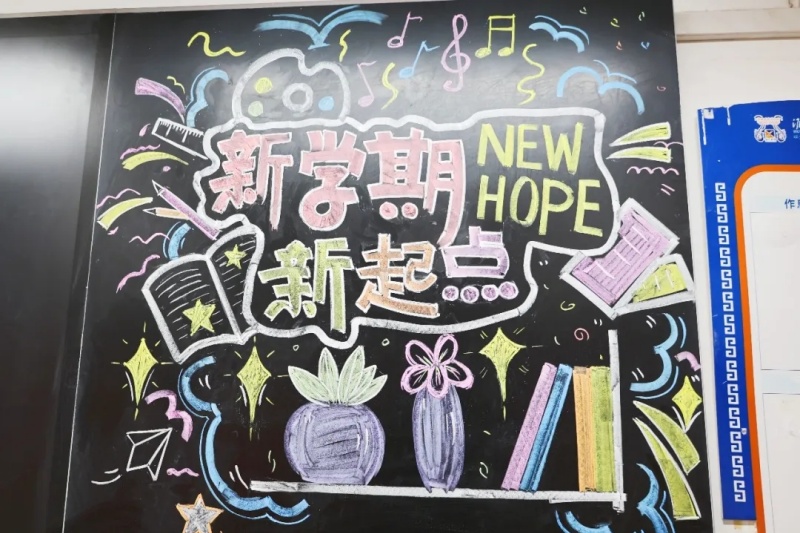 新学期
NEW
HOPE
新起点